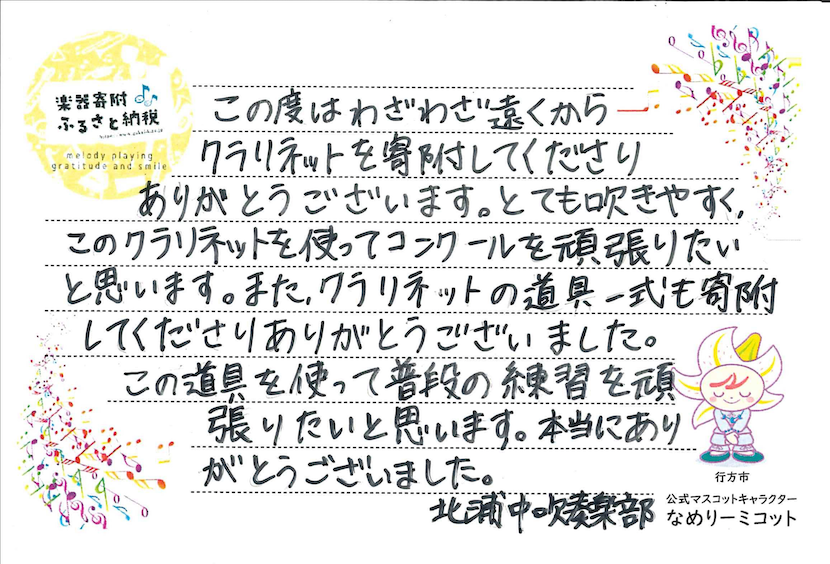 楽器寄附
ふるさと納税
melody playing
gratitude and smile
この度はわざわざ遠くから
クラリネットを寄附してくださり
ありがとうございます。とても吹きやすく、
このクラリネットを使ってコンクールを頑張りたい
と思います。また、クラリネットの道具一式も寄附
してくださりありがとうございました。
この道具を使って普段の練習を頑
張りたいと思います。本当にあり
がとうございました。
北浦中吹奏楽部
行方市
公式マスコットキャラクター
なめりーミコット